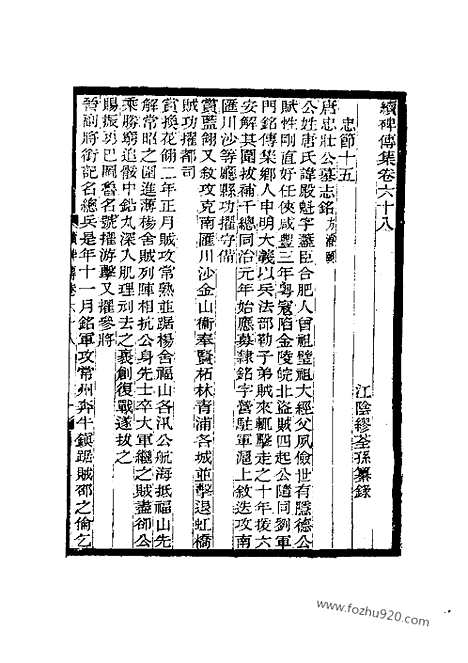 續碑傳集卷六十八
江陰繆荃孫纂錄
忠節十五
唐忠壯公墓志銘 方濬頤
公姓唐氏諱殿魁字藎臣合肥人曾祖璧祖大經父夙儉世有隱德公
賦性剛直好任俠咸豐三年粵寇陷金陵皖北盜賊四起公隨同劉軍
門銘傳集鄉人申明大義以兵法部勒子弟賊來輒擊走之十年援六
安解其圍拔補千總同治元年始應募隸銘字營駐軍滬上敘迭攻南
匯川沙等廳縣功擢守備
賞藍翎又敘攻克南匯川沙金山衞奉賢柘林青浦各城並擊退虹橋
賊功擢都司
賞換花翎二年正月賊攻常熟並踞楊舍福山各汛公航海抵福山先
解常昭之圍進薄楊舍賊列陣相抗公身先士卒大軍繼之賊盡卻公
乘勝窮追骸中鉛丸深入肌理刓去之裹創復戰遂拔之
賜振勇巴圖魯名號擢游擊又擢參將
晉副將銜記名總兵是年十一月銘軍攻常州奔牛鎮踞賊邵之倫乞
續碑傳集卷六十八
www.fozhu920.com